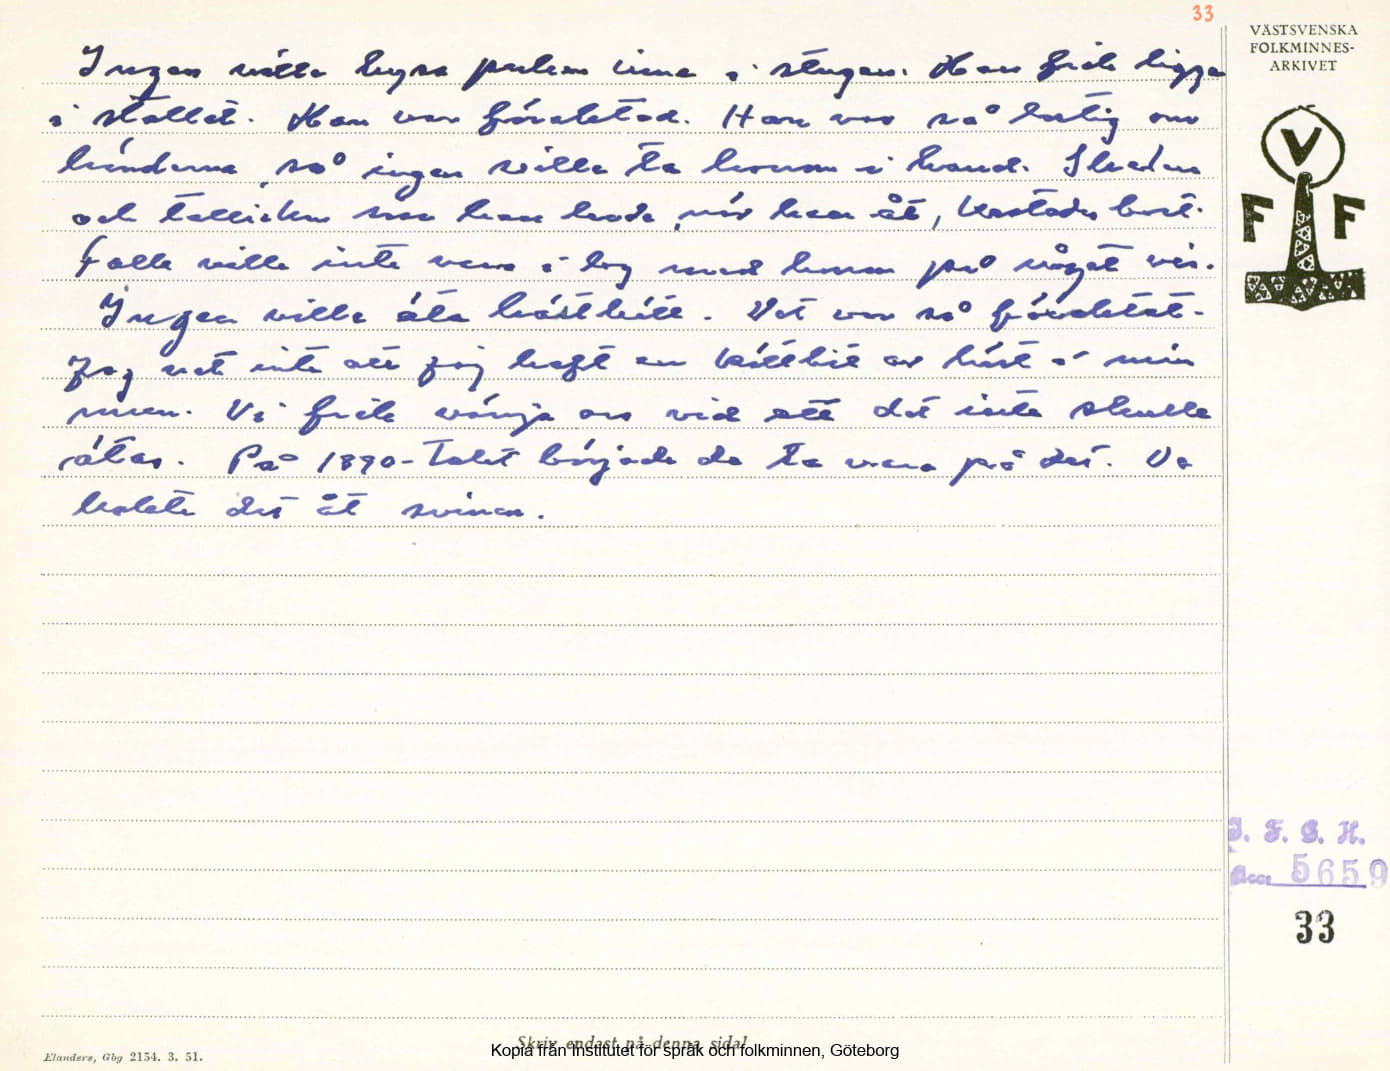 33
VÄSTSVENSKA
FOLKMINNES-
ARKIVET
V
F F
Ingen ville hysa inne i stugan. Han fick ligga
i stallet. Han var föraktad. Han var så lortig om
händerna, så ingen ville ta honom i hand. Skeden
och talricken som han hade, när han åt, kastades bort.
Folk ville inte vara i lag med honom på något vis.
Ingen ville äta hästkött. Det var så föraktat.
Jag vet inte att jag haft en köttbit av häst i min
mun. Vi fick vänja oss vid att det inte skulle
ätas. På 1890-talet började de ta vara på det. De
kokte det åt svinen.
I. F. G. H.
Acc. 5659
33
Skriv endast på denna sida!
Kopia från Institutet för språk och folkminnen, Göteborg
Elanders, Gbg 2154. 3. 51.